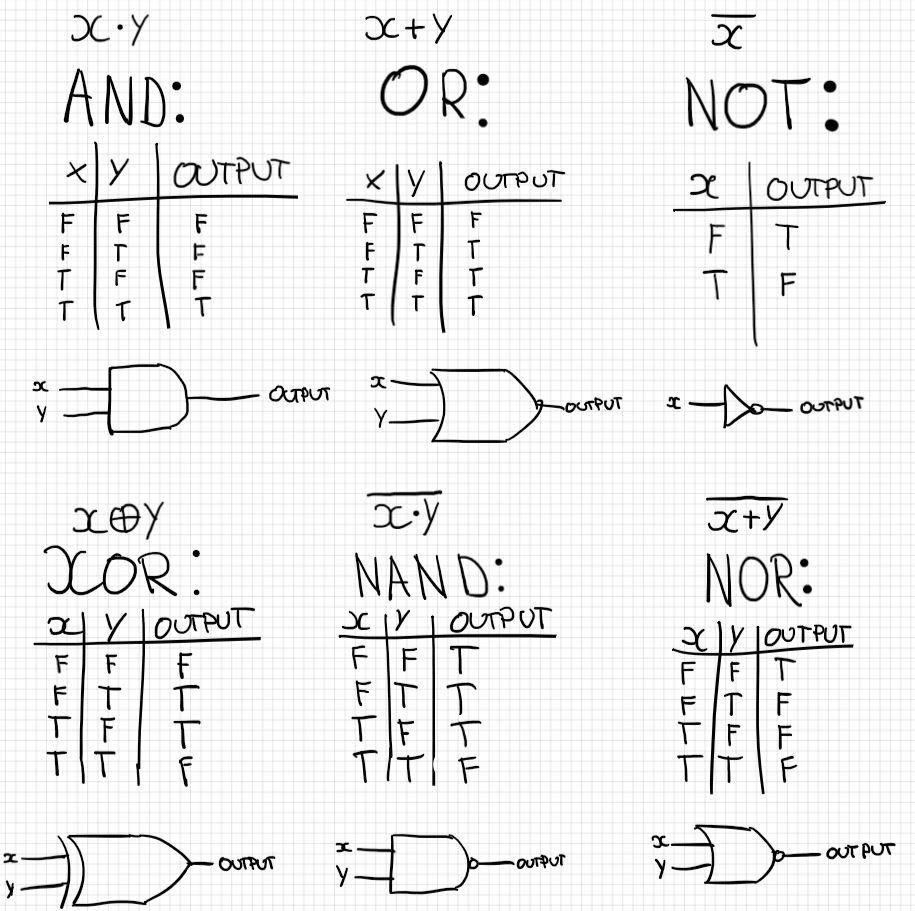 x·y
AND:
x y OUTPUT
F F F
F T F
T F F
T T T
x
y
OUTPUT
x+y
OR:
x y OUTPUT
F F F
F T T
T F T
T T T
x
y
OUTPUT
x̅
NOT:
x OUTPUT
F T
T F
x
OUTPUT
x⊕y
XOR:
x y OUTPUT
F F F
F T T
T F T
T T F
x
y
OUTPUT
x̅·̅y̅
NAND:
x y OUTPUT
F F T
F T T
T F T
T T F
x
y
OUTPUT
x̅+̅y̅
NOR:
x y OUTPUT
F F T
F T F
T F F
T T F
x
y
OUTPUT